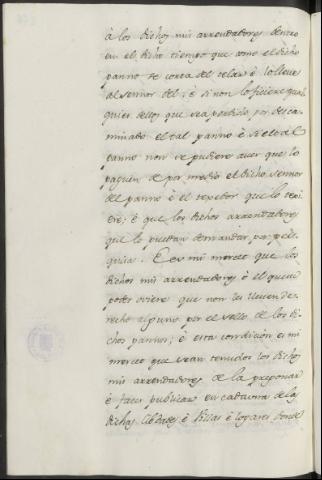 à los dichos mis arrendadores dentro
en el dicho tiempo que como el dicho
panno se corta del telar è lo lleve
al sennor del; è si non lo ficiere qual-
quier dellos que sea perdido, por desca-
minado el tal panno è si el tal
panno non se pudiere aver que lo
paguen de por medio el dicho sennor
del panno è el texedor que lo texi-
ere; è que los dichos arrendadores
que lo puedan demandar por pes-
quisa. E es mi merced que los
dichos mis arrendadores è el que su
poder oviere que non les lleven de-
recho alguno por el sello de los di-
chos pannos; è esta condicion es mi
merced que sean tenudos los dichos
mis arrendadores de la pregonar
è facer publicar en cada una de las
dichas Cibdades è Villas è logares donde